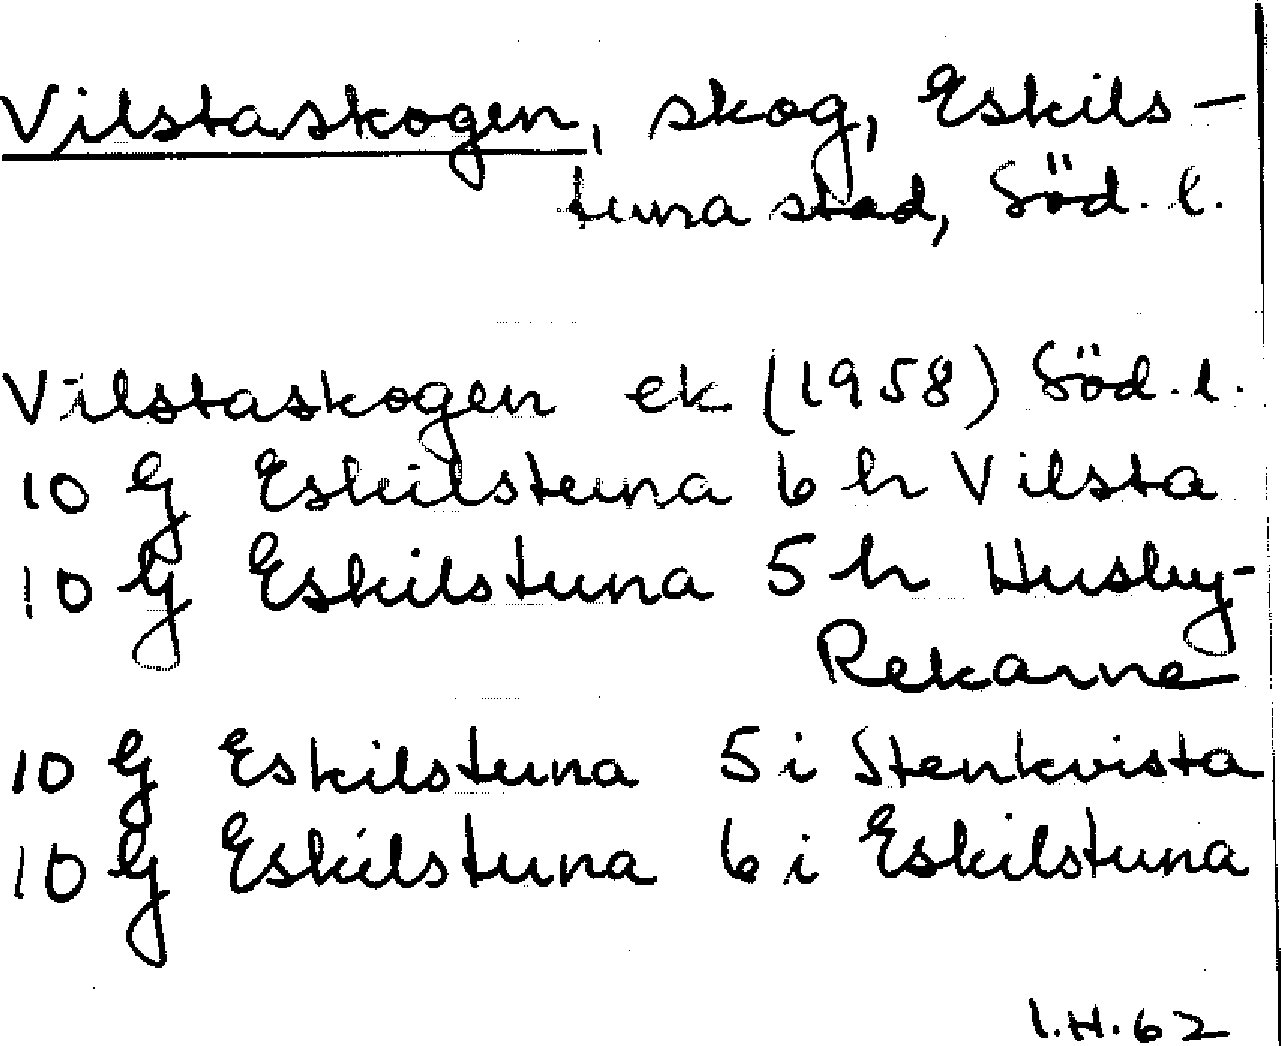 Vilstaskogen, skog, Eskils-
tuna stad, Söd. l.
Vilstaskogen ek (1958) Söd. l.
10 G Eskilstuna 6 h Vilsta
10 G Eskilstuna 5 h Husby-
Rekarne
10 G Eskilstuna 5 i Stenkvista
10 G Eskilstuna 6 i Eskilstuna
I.H. 62